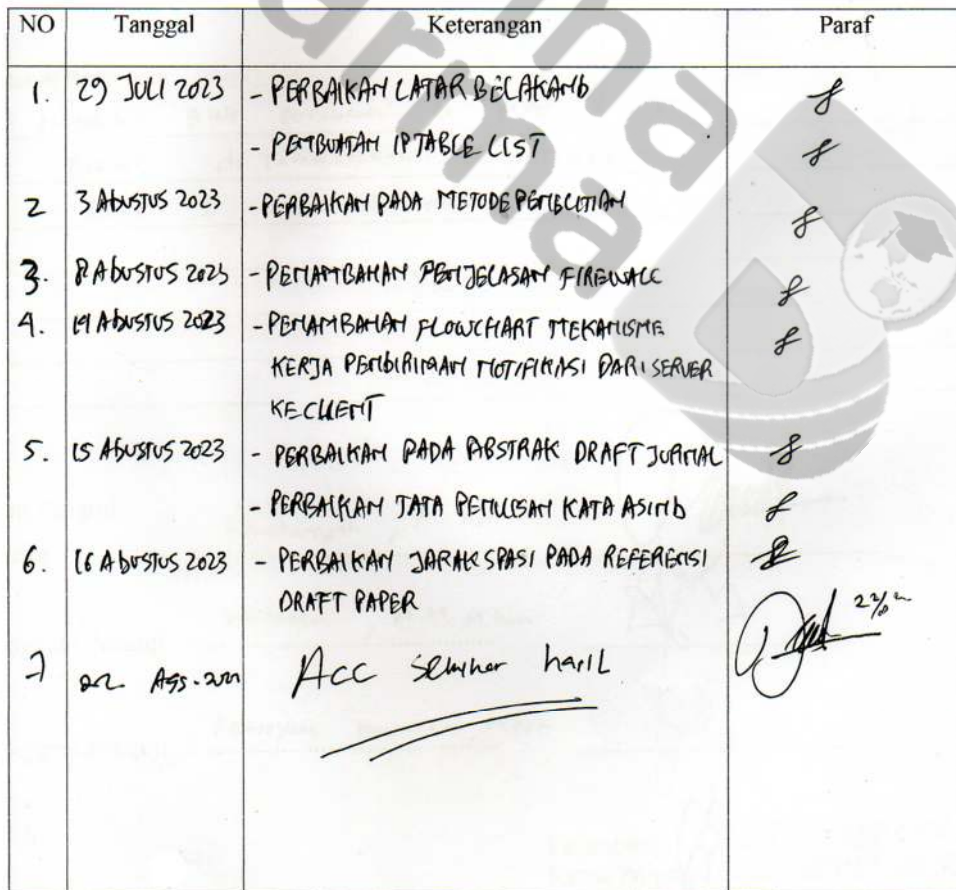 NO Tanggal Keterangan Paraf
1. 29 JULI 2023 - PERBAIKAN LATAR BELAKANG
- PEMBUATAN IPTABLE LIST
2 3 AGUSTUS 2023 - PERBAIKAN PADA METODE PENELITIAN
3. 8 AGUSTUS 2023 - PENAMBAHAN PENJELASAN FIREWALL
4. 14 AGUSTUS 2023 - PENAMBAHAN FLOWCHART MEKANISME
KERJA PENGIRIMAAN NOTIFIKASI DARI SERVER
KE CLIENT
5. 15 AGUSTUS 2023 - PERBAIKAN PADA ABSTRAK DRAFT JURNAL
- PERBAIKAN TATA PENULISAN KATA ASING
6. 16 AGUSTUS 2023 - PERBAIKAN JARAK SPASI PADA REFERENSI
DRAFT PAPER
7 22 Ags - Acc seminar hasil